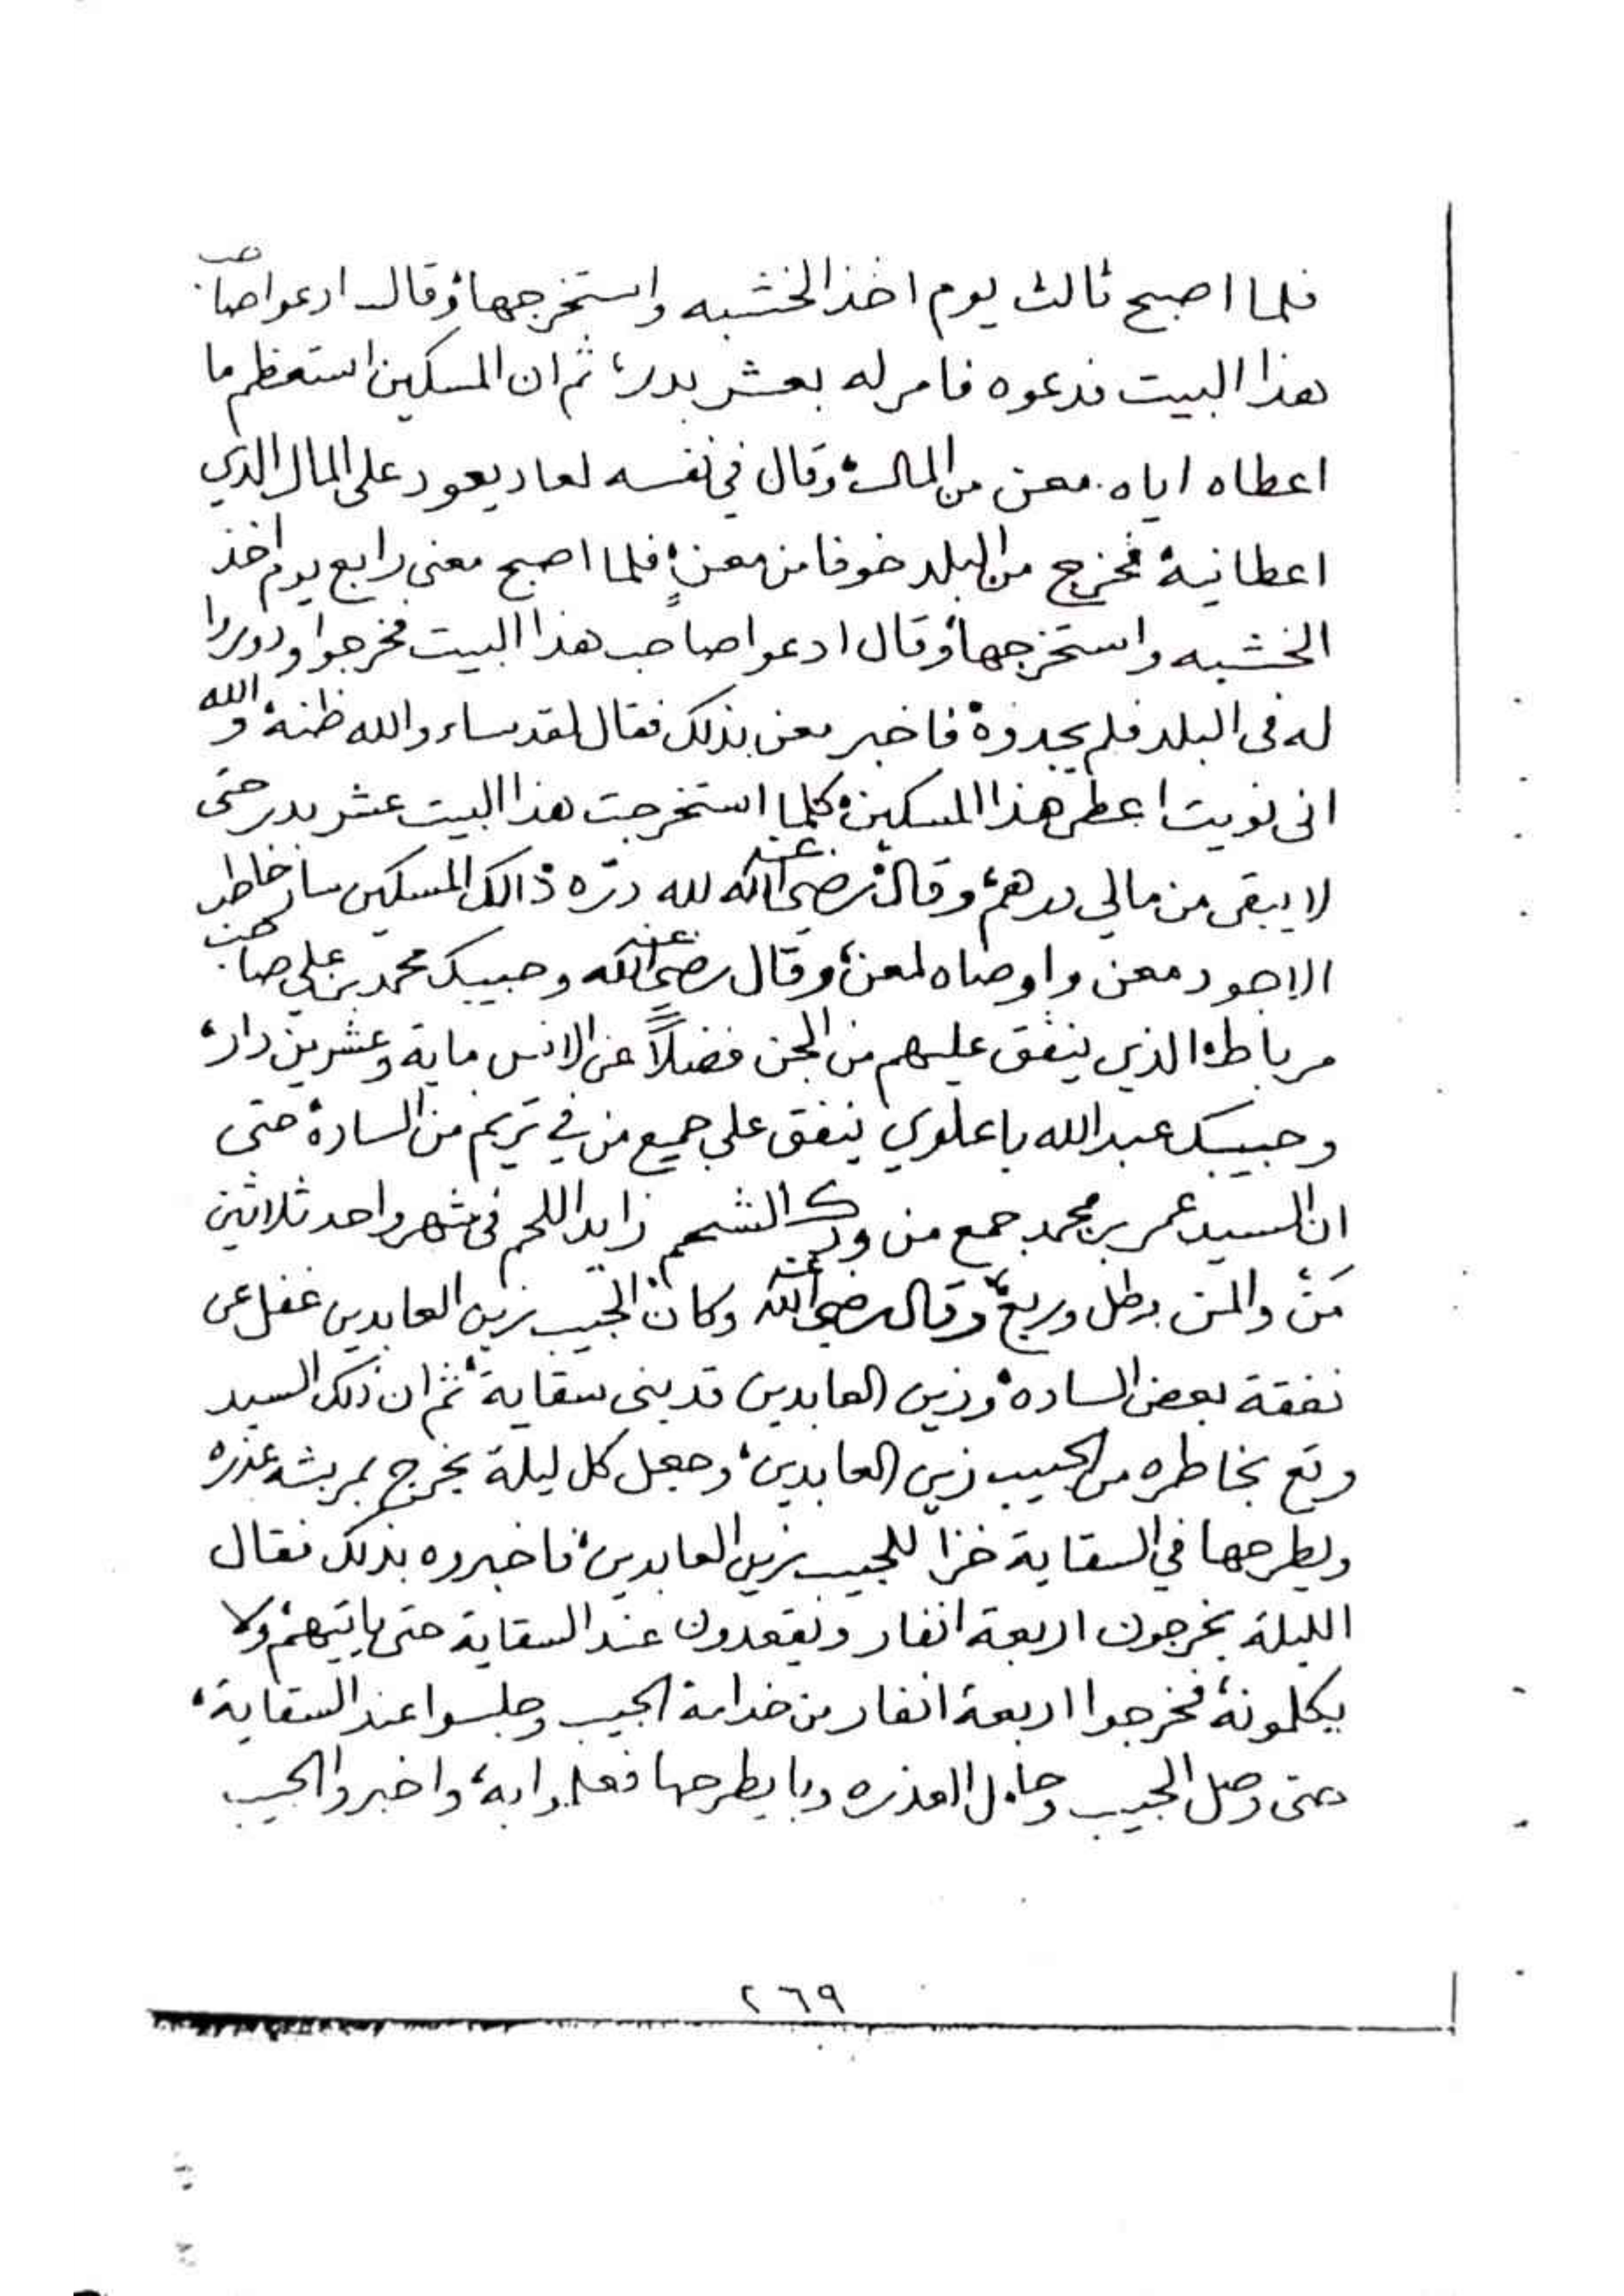 فلما اصبح ثالث يوم اخذ الخشبه واستخرجها، وقال ادعوا صاحب
هذا البيت فدعوه فامر له بعشر بدر، ثم ان المسكين استعظم ما
اعطاه اياه معن من المال، وقال في نفسه لعاد يعود على المال الذي
اعطانيه، فخرج من البلد خوفا من معن، فلما اصبح معن رابع يوم اخذ
الخشبه واستخرجها، وقال ادعوا صاحب هذا البيت فخرجوا ودوروا
له في البلد فلم يجدوه، فاخبر معن بذلك فقال لقد ساء والله ظنه، والله
انى نويت اعطي هذا المسكين، كلما استخرجت هذا البيت عشر بدر حتى
لا يبقى من مالي درهم، وقال رضي الله عنه لله دره ذالك المسكين
الاجود معن واوصاه لمعن، وقال رضي الله عنه وحبيبك محمد بن علي صاحب
مرباط، الذي ينفق عليهم من الجن فضلاً عن الانس ماية وعشرين دار،
وحبيبك عبدالله باعلوي ينفق على جميع من في تريم من السادة، حتى
ان السيد عمر بن محمد جمع من ودك الشحم زايد اللحم في شهر واحد ثلاثين
مَنّ، والمن برطل وربع، وقال رضي الله عنه وكان الحبيب زين العابدين غفل عن
نفقة بعض الساده، وزين العابدين قد بنى سقاية، ثم ان ذلك السيد
وقع بخاطره من الحبيب زين العابدين، وجعل كل ليلة يخرج بمربشه عذره
ويطرحها في السقاية خزا للحبيب زين العابدين، فاخبروه بذلك فقال
الليلة يخرجون اربعة انفار ويقعدون عند السقاية حتى ياتيهم، ولا
يكلمونه، فخرجوا اربعة انفار من خدامة الحبيب وجلسوا عند السقاية،
حتى وصل الحبيب وحامل العذره وبا يطرحها فعلموا به، واخبروا الحبيب
٢٦٩